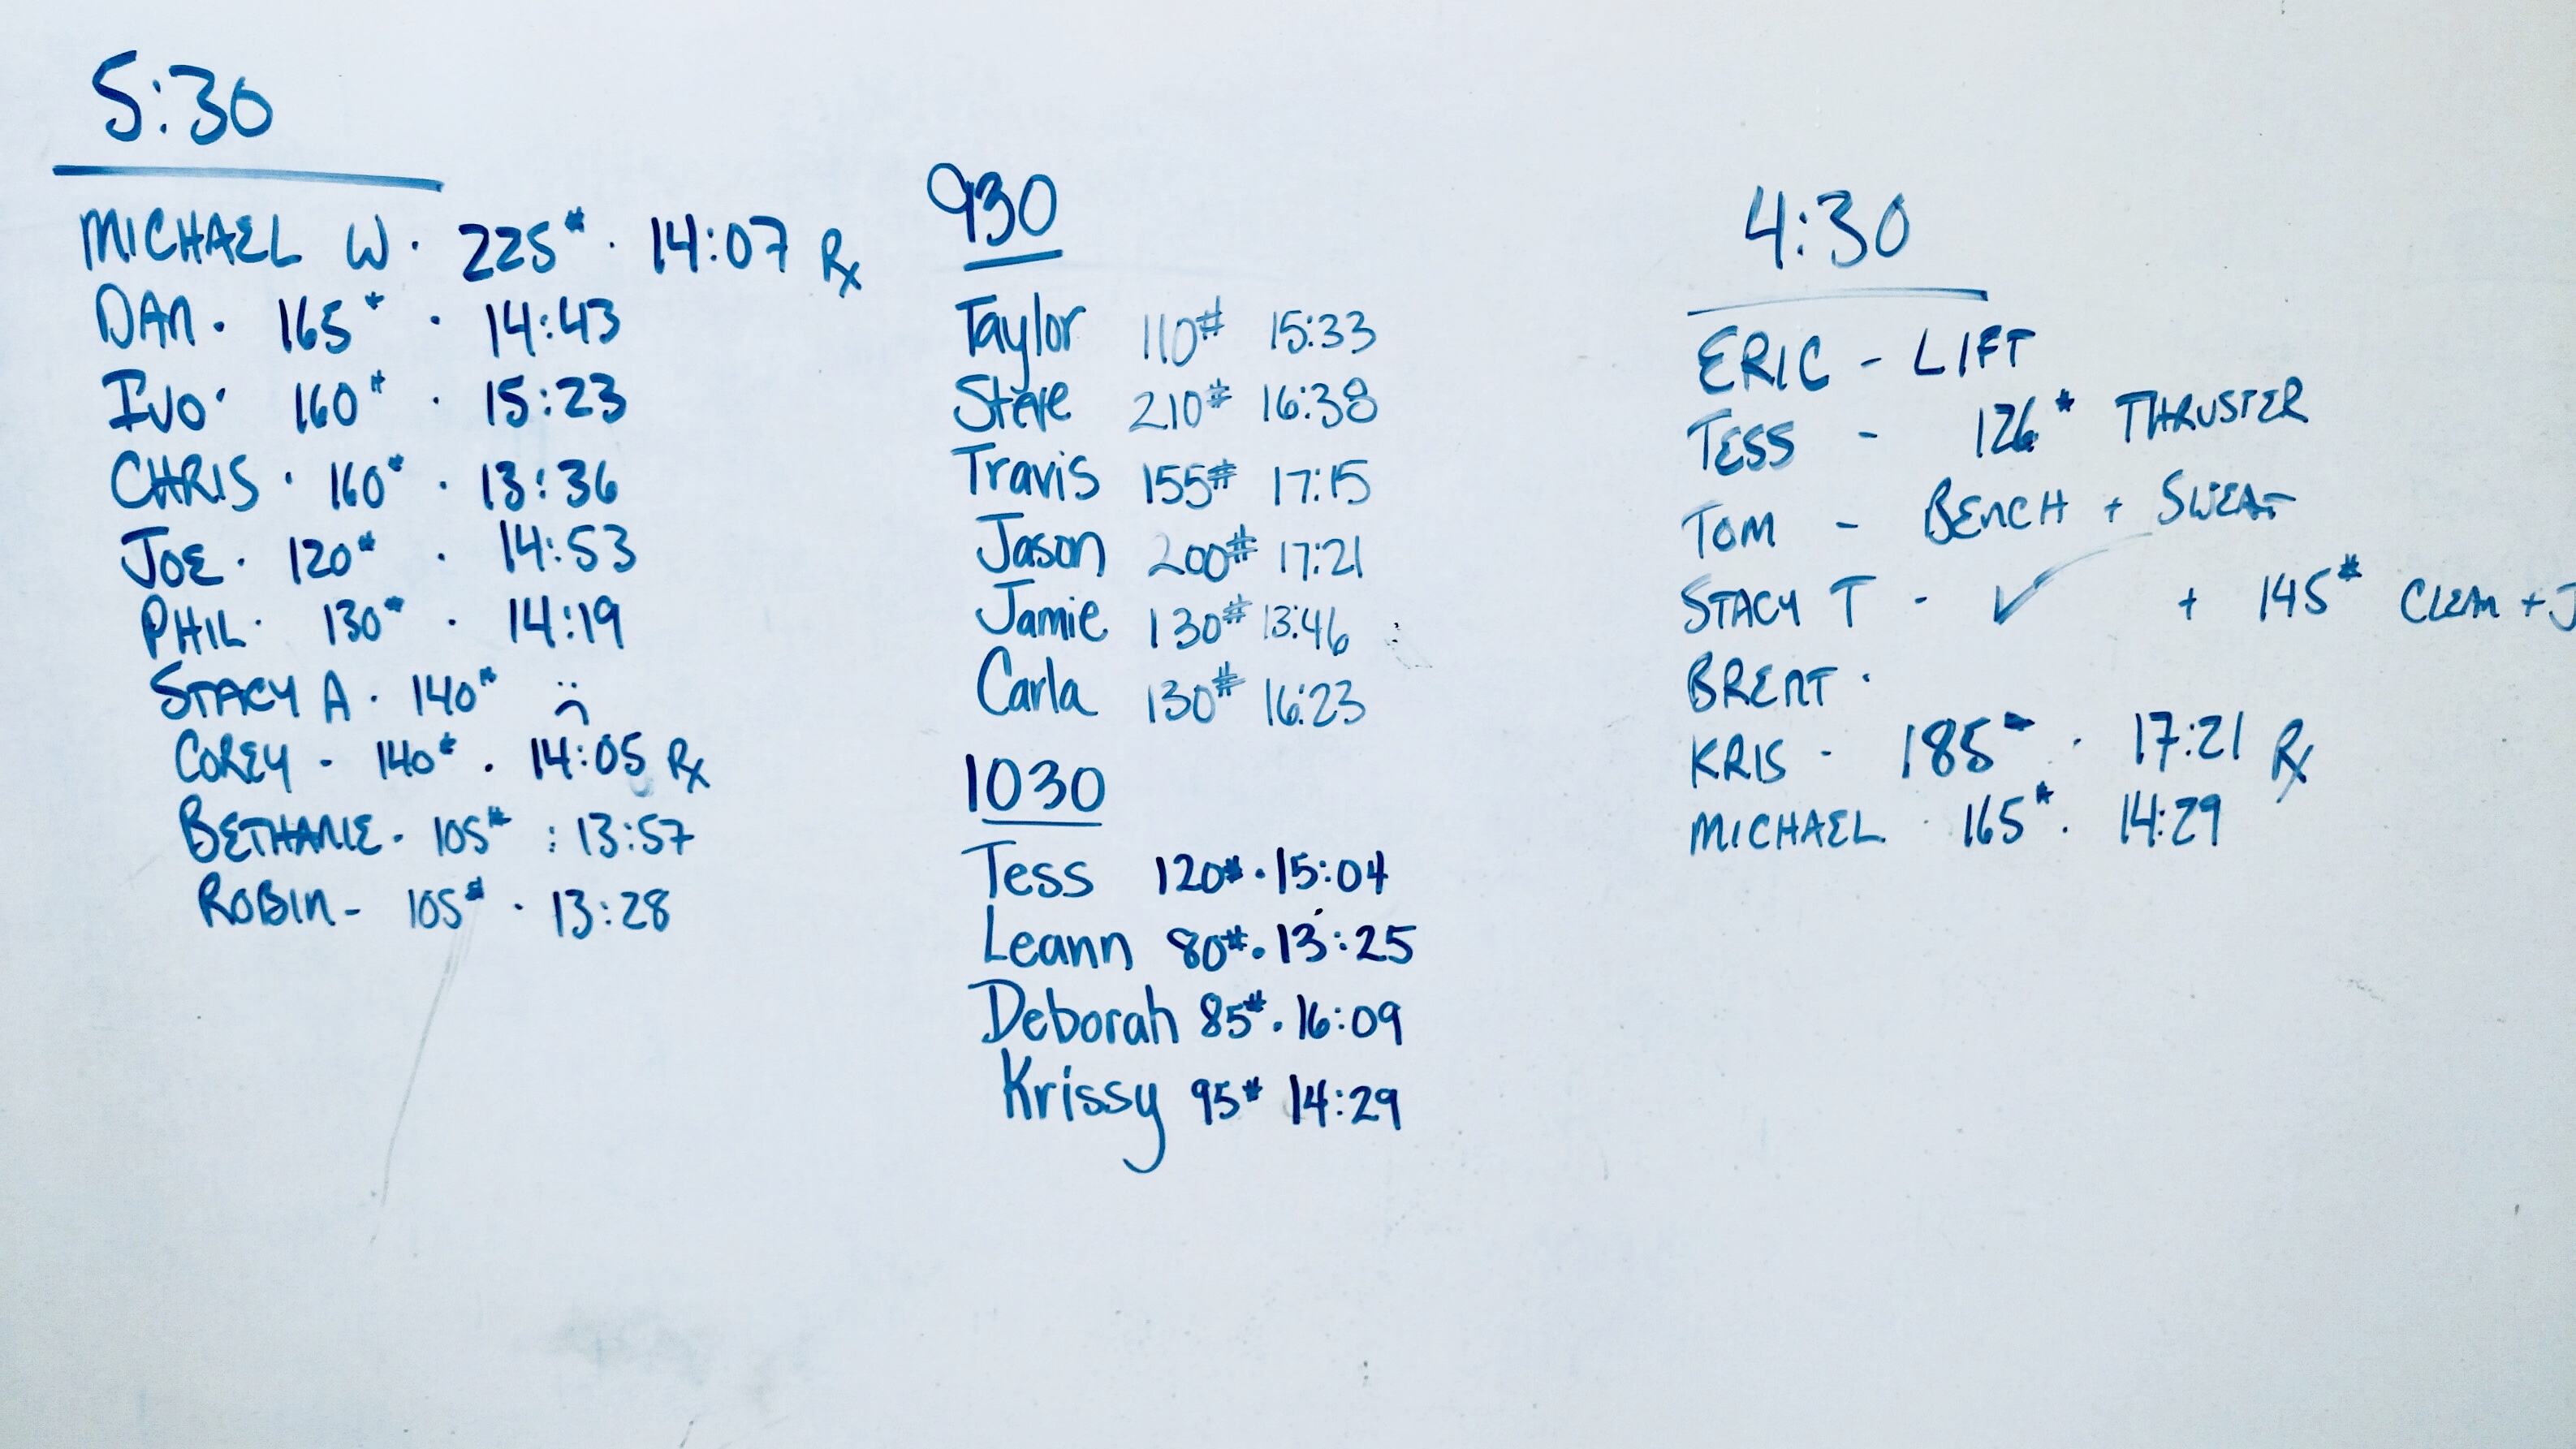 5:30
MICHAEL W · 225# · 14:07 Rx
DAN · 165# · 14:43
IVO · 160# · 15:23
CHRIS · 160# · 13:36
JOE · 120# · 14:53
PHIL · 130# · 14:19
STACY A · 140# :(
COREY - 140# · 14:05 Rx
BETHANIE - 105# : 13:57
ROBIN - 105# · 13:28
930
Taylor 110# 15:33
Steve 210# 16:38
Travis 155# 17:15
Jason 200# 17:21
Jamie 130# 13:46
Carla 130# 16:23
1030
Tess 120# · 15:04
Leann 80# · 13:25
Deborah 85# · 16:09
Krissy 95# 14:29
4:30
ERIC - LIFT
TESS - 126# THRUSTER
TOM - BENCH + SWEAT
STACY T - ✓ + 145# CLEAN + J
BRENT ·
KRIS - 185# · 17:21 Rx
MICHAEL · 165# · 14:29